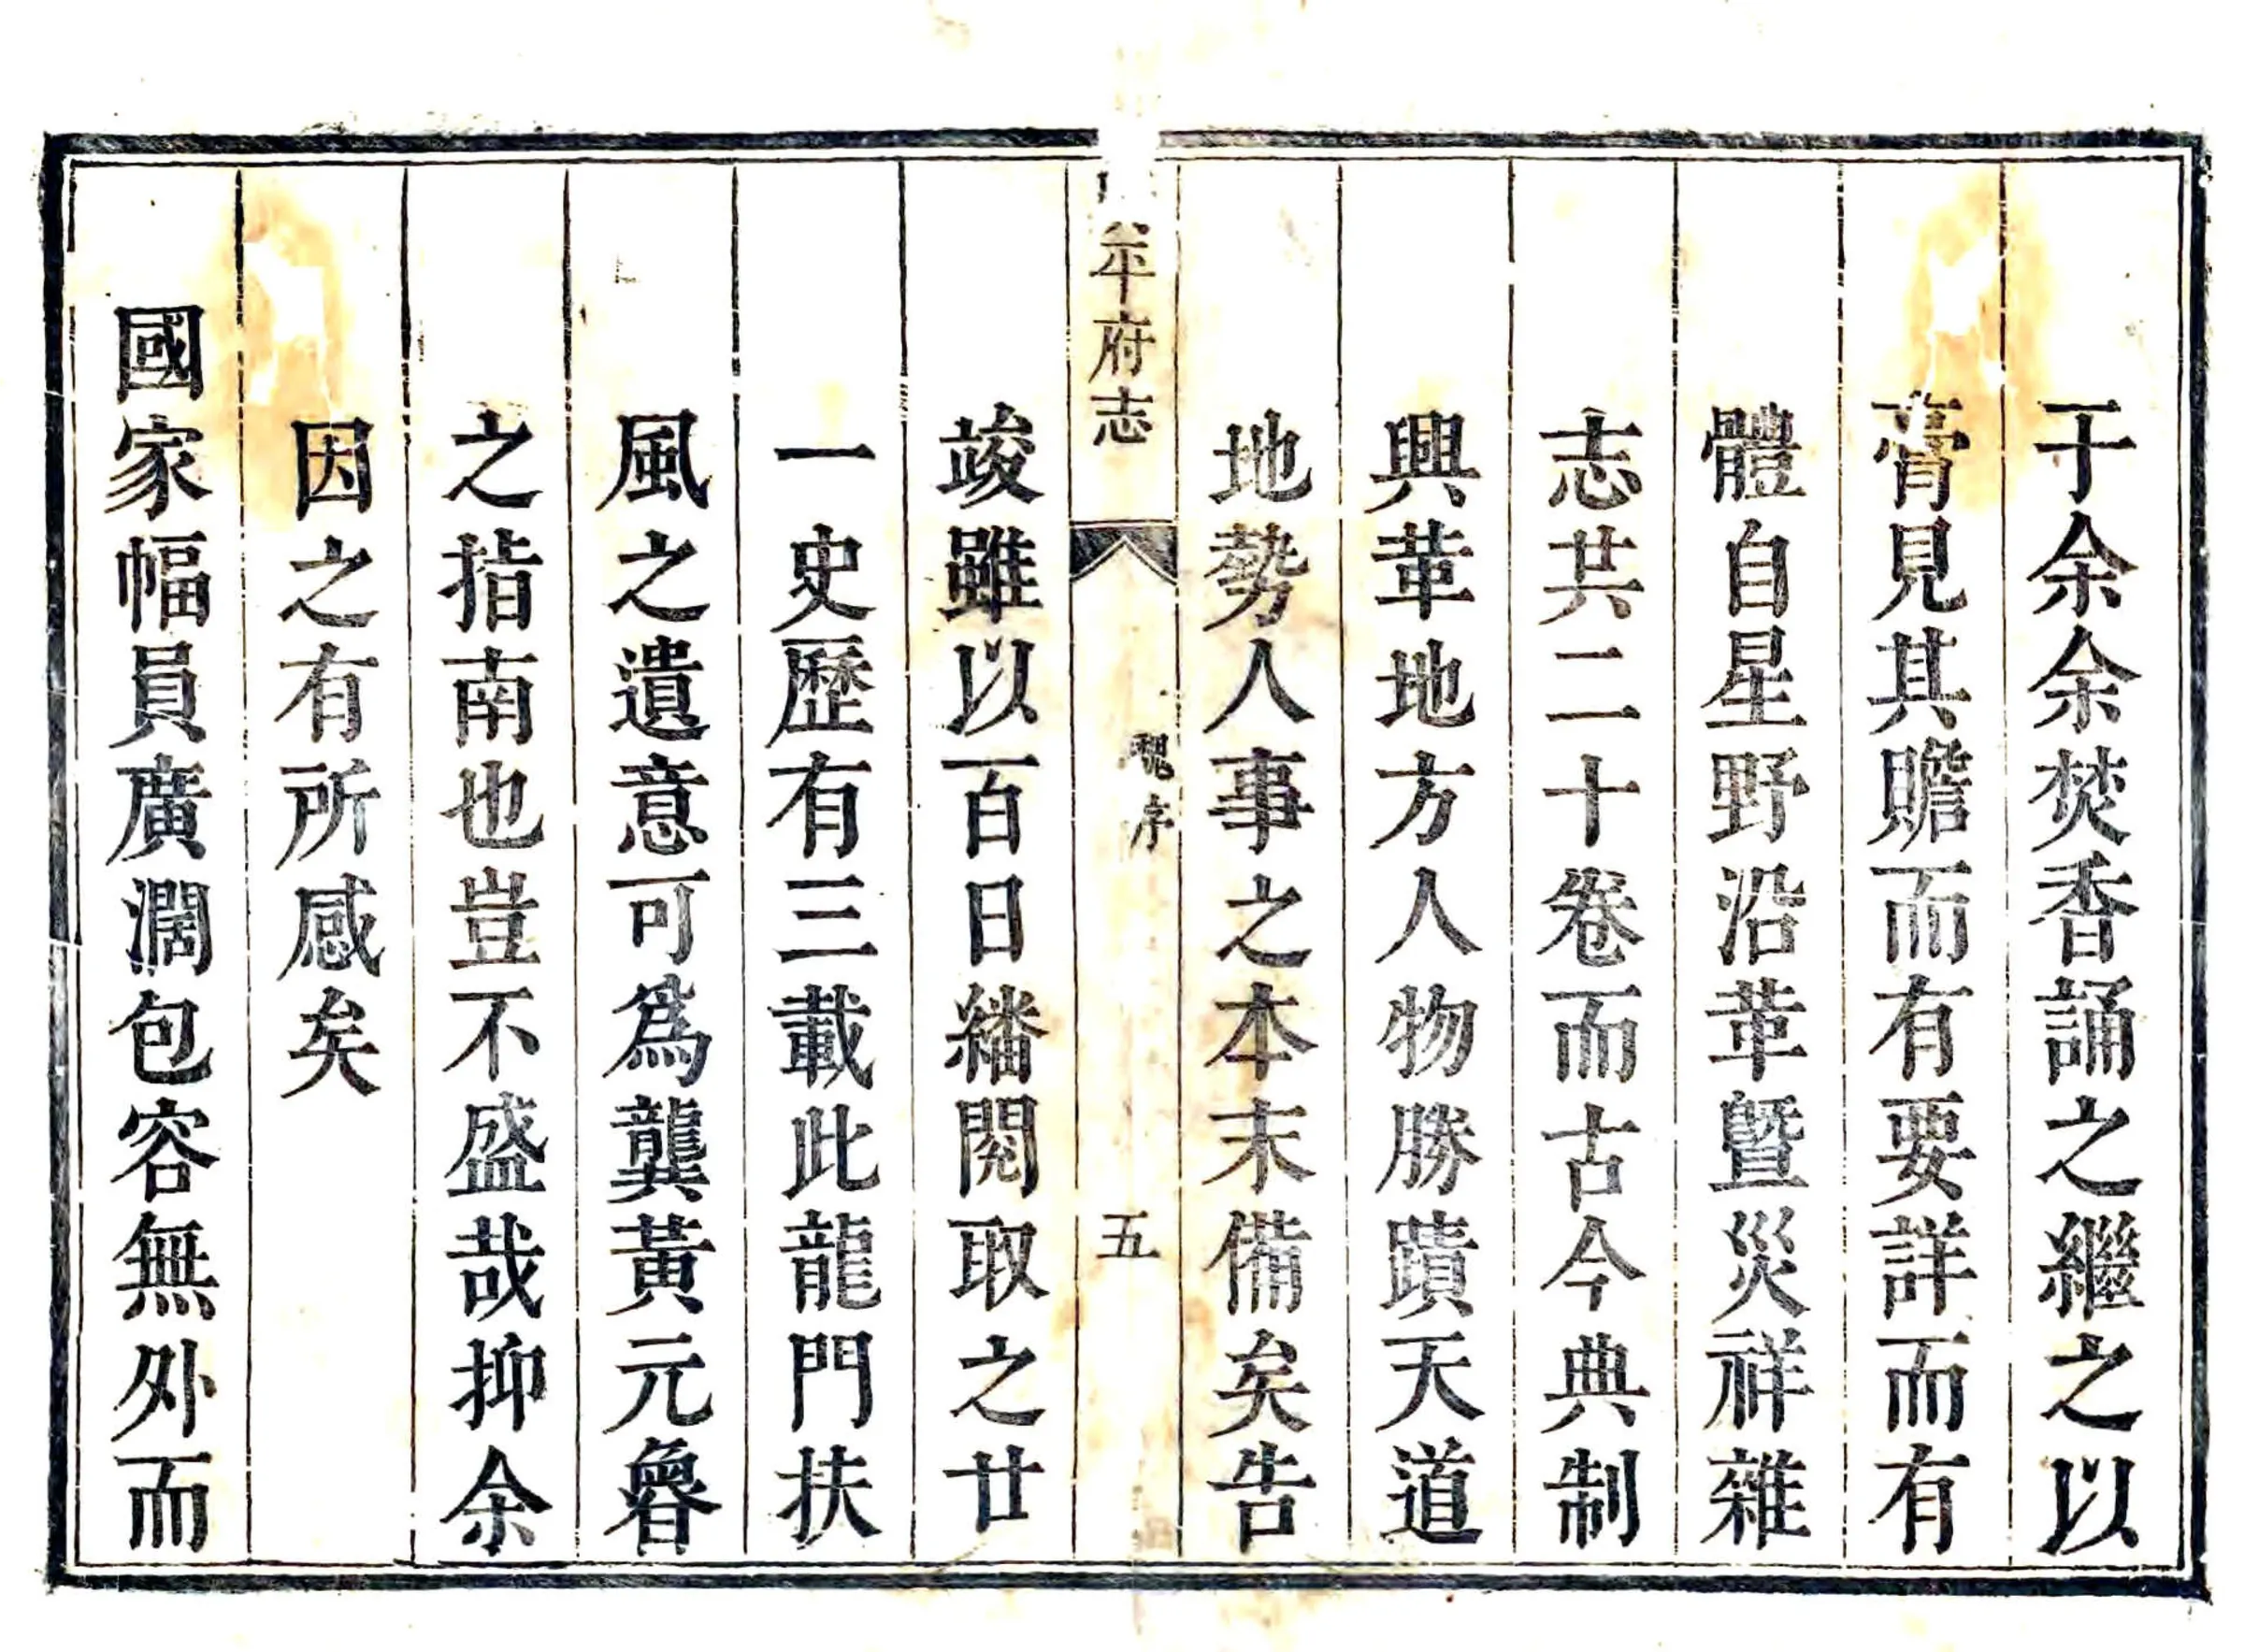 于余余焚香誦之繼之以
膏見其贍而有要詳而有
體自星野沿革曁災祥雜
志共二十卷而古今典制
興革地方人物勝蹟天道
地勢人事之本末備矣告
平府志
魏序
五
竣雖以百日繙閱取之廿
一史歷有三載此龍門扶
風之遺意可爲龔黃元魯
之指南也豈不盛哉抑余
因之有所感矣
國家幅員廣濶包容無外而